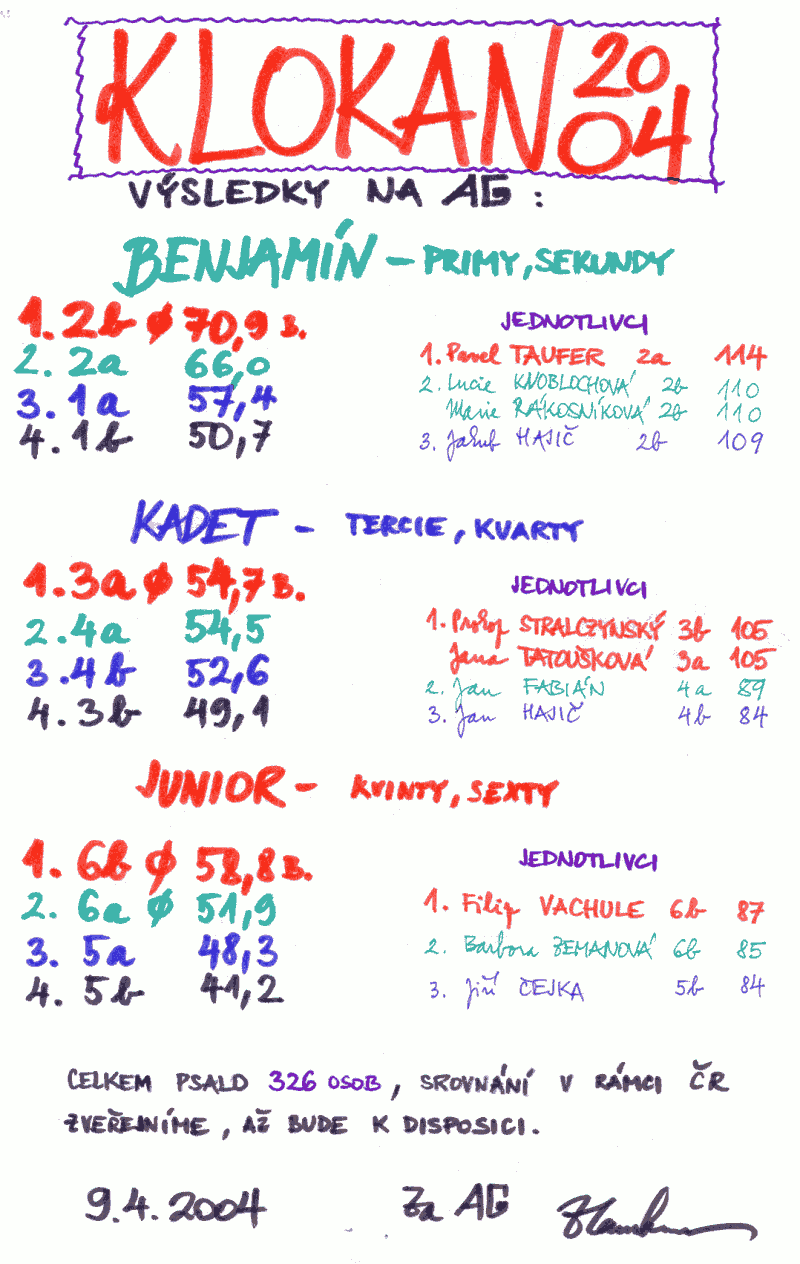 KLOKAN 2004
VÝSLEDKY NA AG :
BENJAMÍN – PRIMY, SEKUNDY
1. 2b ø 70,9 B.
2. 2a 66,0
3. 1a 57,4
4. 1b 50,7
JEDNOTLIVCI
1. Pavel TAUFER 2a 114
2. Lucie KNOBLOCHOVÁ 2b 110
Marie RÁKOSNÍKOVÁ 2b 110
3. Jakub HAJIČ 2b 109
KADET – TERCIE, KVARTY
1. 3a ø 54,7 B.
2. 4a 54,5
3. 4b 52,6
4. 3b 49,1
JEDNOTLIVCI
1. Prokop STRALCZYNSKÝ 3b 105
Jana TATOUŠKOVÁ 3a 105
2. Jan FABIÁN 4a 89
3. Jan HAJIČ 4b 84
JUNIOR – KVINTY, SEXTY
1. 6b ø 58,8 B.
2. 6a ø 51,9
3. 5a 48,3
4. 5b 41,2
JEDNOTLIVCI
1. Filip VACHULE 6b 87
2. Barbora ZEMANOVÁ 6b 85
3. Jiří ČEJKA 5b 84
CELKEM PSALO 326 OSOB, SROVNÁNÍ V RÁMCI ČR
ZVEŘEJNÍME, AŽ BUDE K DISPOSICI.
9.4.2004 Za AG